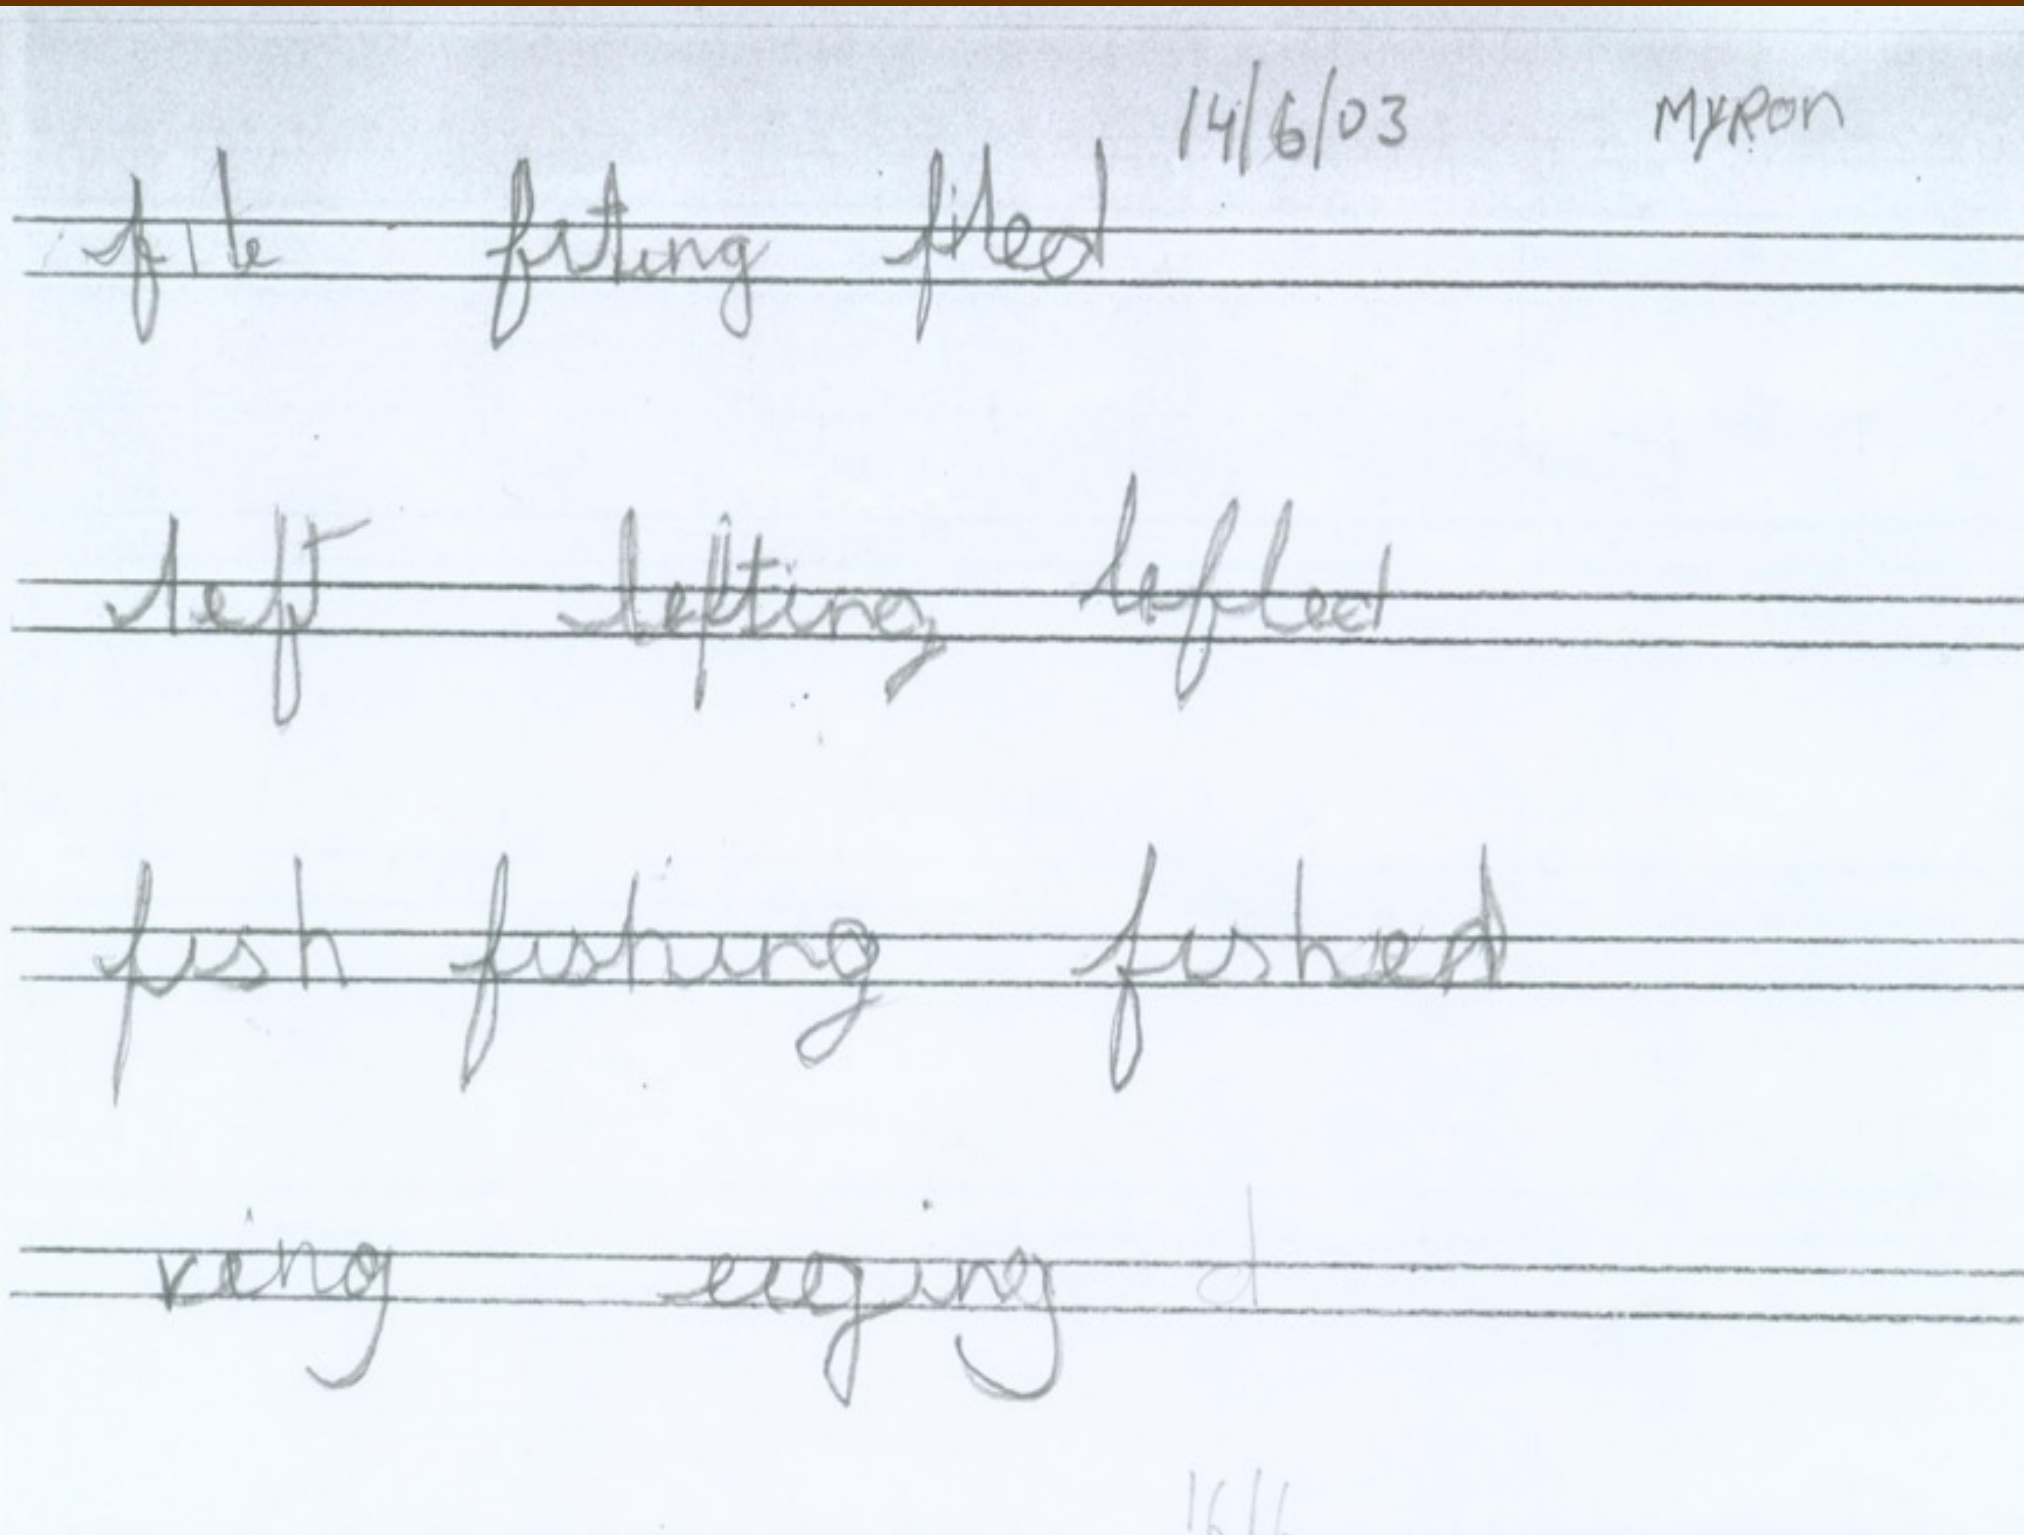 14/6/03 MYRON
file fitting filed
left lefting lefted
fish fishing fished
ring
16/6